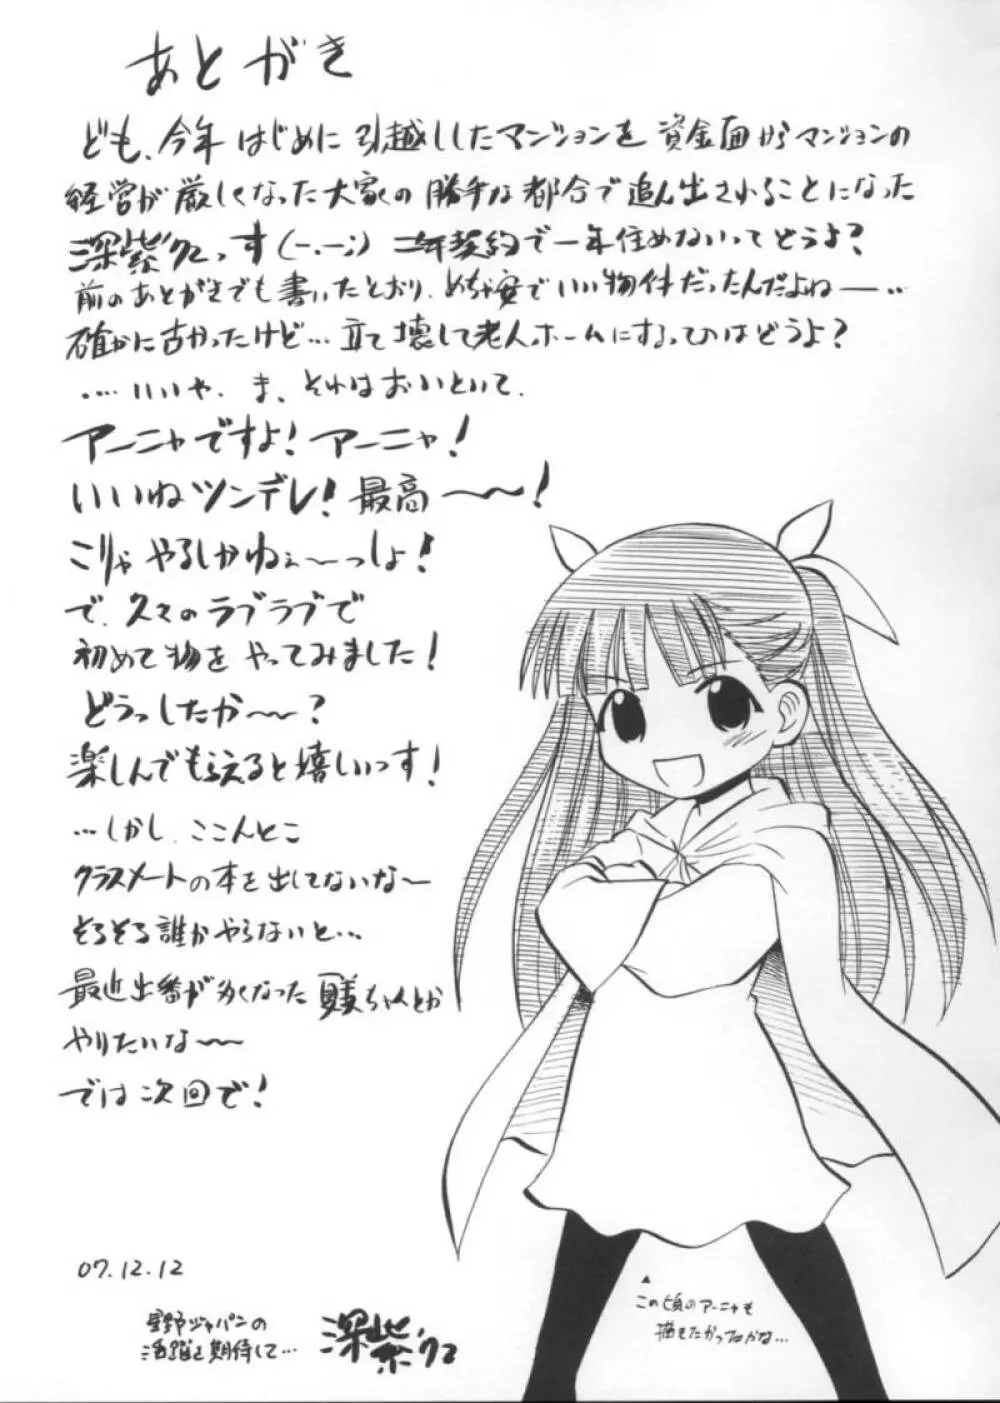 あとがき
ども、今年はじめに引越ししたマンションを資金面からマンションの
経営が厳しくなった大家の勝手な都合で追ん出されることになった
深紫クっす(-.-;) 二年契約で一年住めないってどうよ?
前のあとがきでも書いたとおり、めちゃ安でいい物件だったんだよねー…
確かに古かったけど…立て壊して老人ホームにするってのはどうよ?
....いいや、ま、それはおいといて、
アーニャですよ!アーニャ!
いいねツンデレ!最高〜〜!
こりゃやるしかねぇ〜っしょ!
で、久々のラブラブで
初めて物をやってみました!
どうっしたか〜〜?
楽しんでもらえると嬉しいっす!
…しかし、ここんとこ
クラスメートの本を出してないな〜
そろそろ誰かやらないと…
最近出番が多くなった夏美ちゃんとか
やりたいな〜〜
では次回で!
07.12.12
星野ジャパンの
活躍を期待して…
深紫
▲
この頃のアーニャも
描きたかったかな…